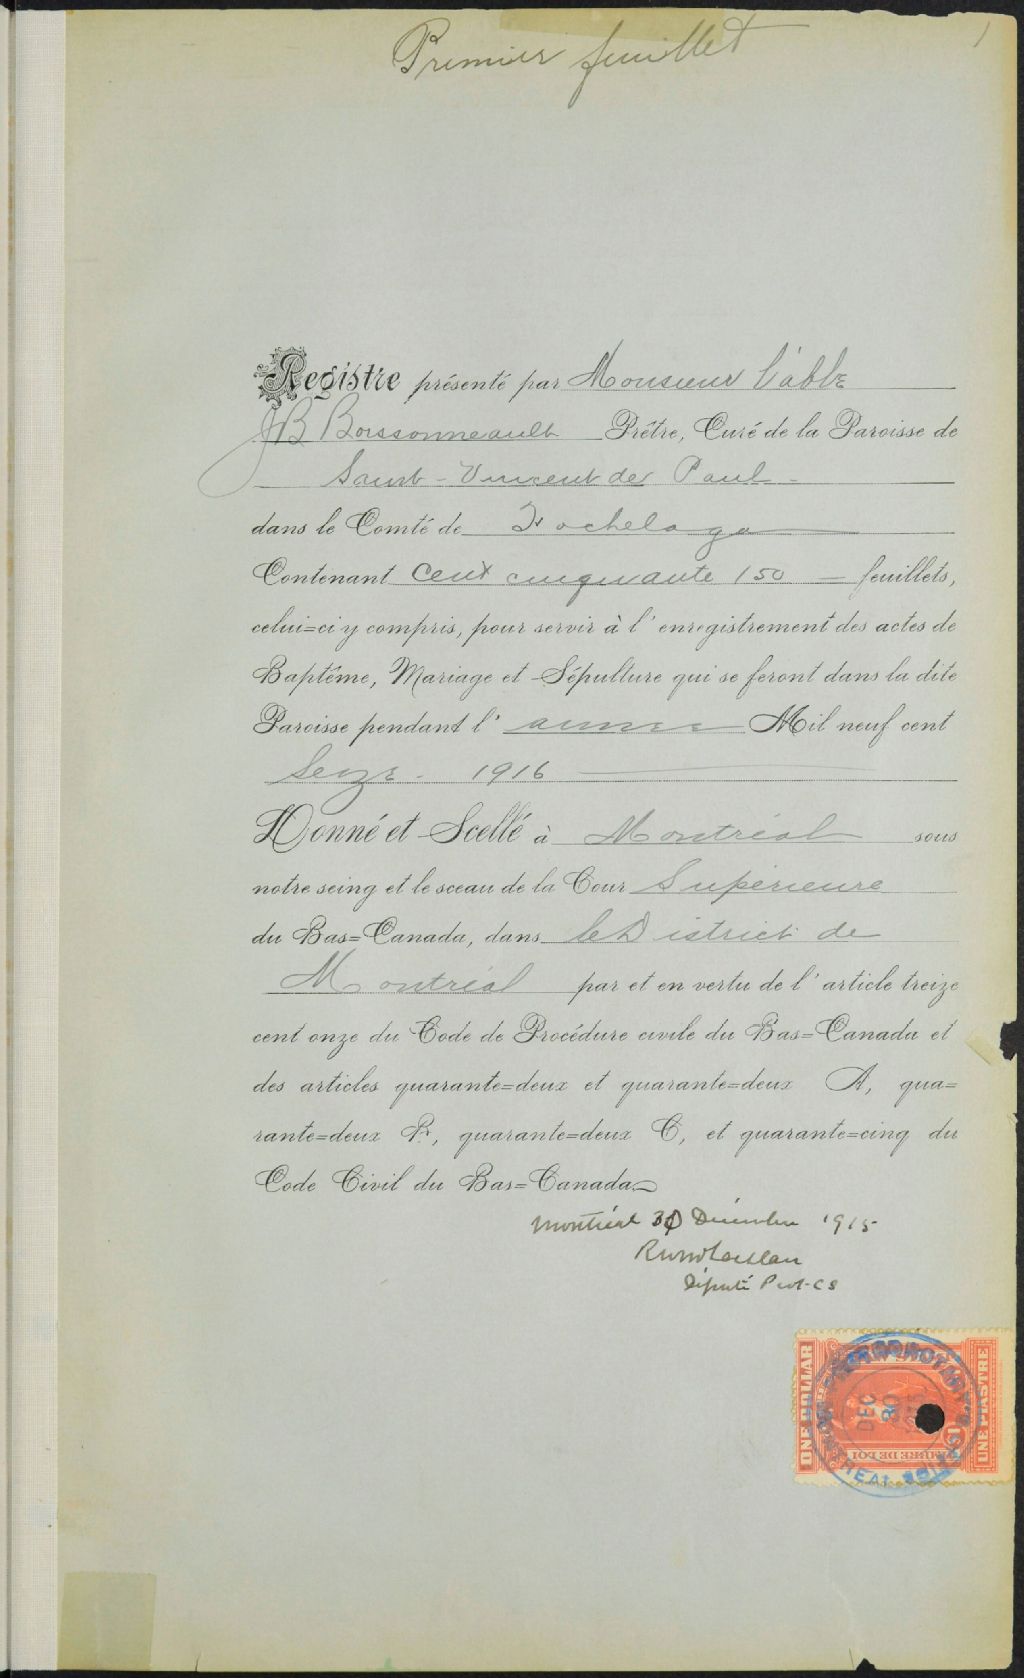 Premier feuillet
1
Registre présenté par Monsieur l'abbé
JB Boissonneault Prêtre, Curé de la Paroisse de
Saint-Vincent de Paul-
dans le Comté de Hochelaga
Contenant cent cinquante 150 — feuillets,
celui=ci y compris, pour servir à l'enregistrement des actes de
Baptême, Mariage et Sépulture qui se feront dans la dite
Paroisse pendant l'année Mil neuf cent
Seize - 1916
Donné et Scellé à Montréal sous
notre seing et le sceau de la Cour Supérieure
du Bas=Canada, dans le District de
Montréal par et en vertu de l'article treize
cent onze du Code de Procédure civile du Bas=Canada et
des articles quarante=deux et quarante=deux A, qua=
rante=deux B, quarante=deux C, et quarante=cinq du
Code Civil du Bas=Canada
Montréal 30 Décembre 1915
Député Prot. C S
ONE DOLLAR
UNE PIASTRE
TIMBRE DE LOI
PROTHONOTARY'S OFFICE
MONTREAL
DEC
30
1915